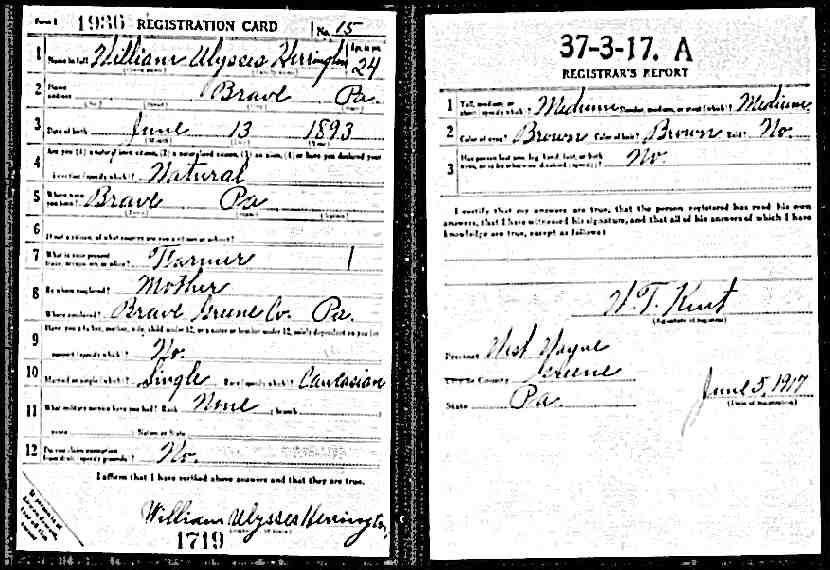 Form 1 1936 REGISTRATION CARD No. 15
1 Name in full William Ulysses Herrington Age, in yrs. 24
2 Home address Brave Pa.
3 Date of birth June 13 1893
(Month) (Day) (Year)
4 Are you (1) a natural born citizen, (2) a naturalized citizen, (3) an alien, (4) or have you declared your
intention (specify which)? Natural
5 Where were you born? Brave Pa
6 If not a citizen, of what country are you a citizen or subject?
7 What is your present trade, occupation, or office? Farmer 1
8 By whom employed? Mother
Where employed? Brave Greene Co. Pa.
9 Have you a father, mother, wife, child under 12, or a sister or brother under 12, solely dependent on you for
support (specify which)? No.
10 Married or single (which)? Single Race (specify which)? Caucasian
11 What military service have you had? Rank None branch
years Nation or State
12 Do you claim exemption from draft (specify grounds)? No.
I affirm that I have verified above answers and that they are true.
William Ulysses Herrington
1719
37-3-17. A
REGISTRAR'S REPORT
1 Tall, medium, or short (specify which)? Medium Slender, medium, or stout (which)? Medium
2 Color of eyes? Brown Color of hair? Brown Bald? No.
3 Has person lost arm, leg, hand, foot, or both eyes, or is he otherwise disabled (specify)? No.
I certify that my answers are true, that the person registered has read his own
answers, that I have witnessed his signature, and that all of his answers of which I have
knowledge are true, except as follows:
H T. Kent
(Signature of registrar)
Precinct West Wayne
City or County Greene
State Pa. June 5, 1917
(Date of registration)